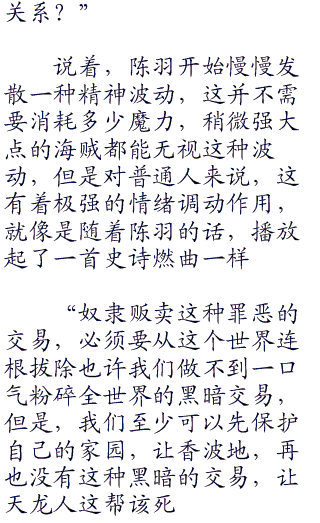 关系？”
说着，陈羽开始慢慢发
散一种精神波动，这并不需
要消耗多少魔力，稍微强大
点的海贼都能无视这种波
动，但是对普通人来说，这
有着极强的情绪调动作用，
就像是随着陈羽的话，播放
起了一首史诗燃曲一样
“奴隶贩卖这种罪恶的
交易，必须要从这个世界连
根拔除也许我们做不到一口
气粉碎全世界的黑暗交易，
但是，我们至少可以先保护
自己的家园，让香波地，再
也没有这种黑暗的交易，让
天龙人这帮该死